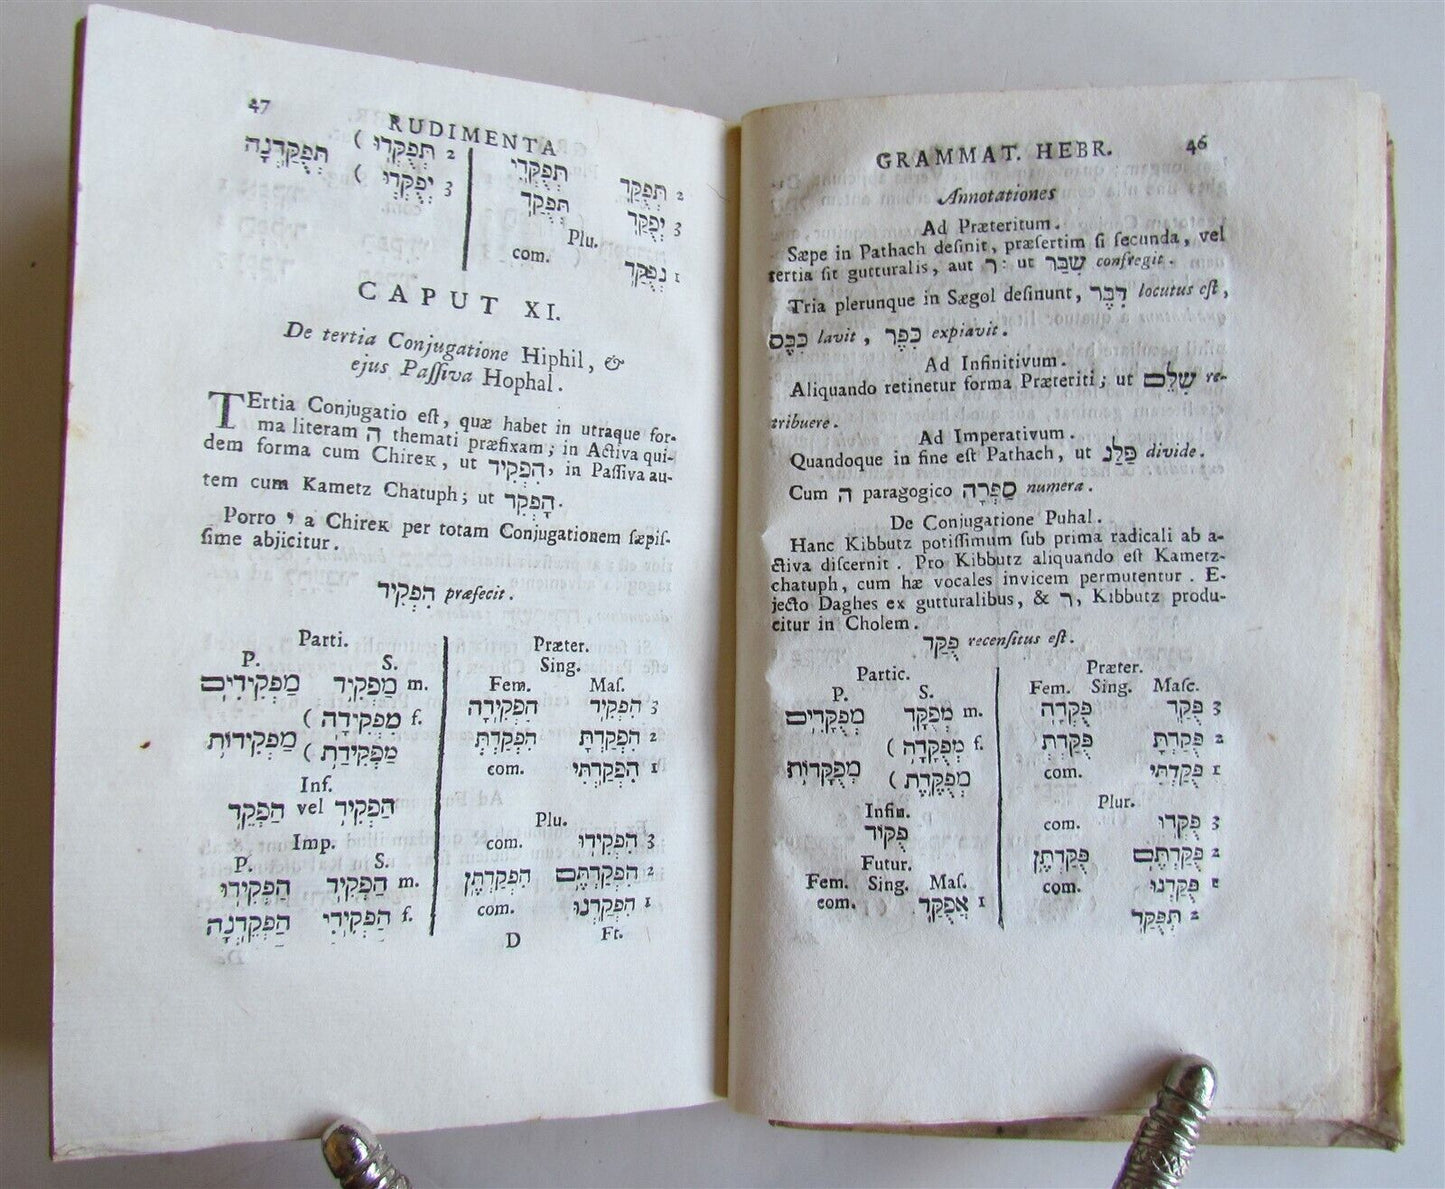 GRAMMAT. HEBR. 46
Annotationes
Ad Præteritum.
Sæpe in Pathach deſinit, præſertim ſi ſecunda, vel
tertia ſit gutturalis, aut ר: ut שִׁבַּר confregit.
Tria plerunque in Sægol deſinunt, דִּבֶּר locutus eſt,
כִּבֶּס lavit, כִּפֶּר expiavit.
Ad Infinitivum.
Aliquando retinetur forma Præteriti; ut שִׁלֵּם re-
tribuere.
Ad Imperativum.
Quandoque in fine eſt Pathach, ut פַּלַּג divide.
Cum ה paragogico סַפְּרָה numera.
De Conjugatione Puhal.
Hanc Kibbutz potiſſimum ſub prima radicali ab a-
ctiva diſcernit. Pro Kibbutz aliquando eſt Kametz-
chatuph, cum hæ vocales invicem permutentur. E-
jecto Daghes ex gutturalibus, & ר, Kibbutz produ-
citur in Cholem.
פֻּקַּד recenſitus eſt.
Præter.
Fem. Sing. Maſc.
3 פֻּקַּד פֻּקְּדָה
2 פֻּקַּדְתָּ פֻּקַּדְתְּ
1 פֻּקַּדְתִּי com.
Plur.
3 פֻּקְּדוּ com.
2 פֻּקַּדְתֶּם פֻּקַּדְתֶּן
פֻּקַּדְנוּ com.
Partic.
P. S.
m. מְפֻקָּד מְפֻקָּדִים
f. מְפֻקָּדָה )
מְפֻקֶּדֶת ) מְפֻקָּדוֹת
Infin.
פֻּקּוֹד
Futur.
Fem. Sing. Maſ.
1 אֲפֻקַּד com.
2 תְּפֻקַּד
47 RUDIMENTA
2 תְּפֻקַּד תְּפֻקְּדִי
3 יְפֻקַּד תְּפֻקַּד
Plu.
1 נְפֻקַּד com.
2 תְּפֻקְּדוּ ) תְּפֻקַּדְנָה
3 יְפֻקְּדוּ )
CAPUT XI.
De tertia Conjugatione Hiphil, &
ejus Paſſiva Hophal.
TErtia Conjugatio eſt, quæ habet in utraque for-
ma literam ה themati præfixam; in Activa qui-
dem forma cum Chirek, ut הִפְקִיד, in Paſſiva au-
tem cum Kametz Chatuph; ut הָפְקַד.
Porro י a Chirek per totam Conjugationem ſæpiſ-
ſime abjicitur.
הִפְקִיד præfecit.
Præter.
Sing.
Fem. Maſ.
3 הִפְקִיד הִפְקִידָה
2 הִפְקַדְתָּ הִפְקַדְתְּ
1 הִפְקַדְתִּי com.
Plu.
3 הִפְקִידוּ com.
2 הִפְקַדְתֶּם הִפְקַדְתֶּן
1 הִפְקַדְנוּ com.
Parti.
P. S.
m. מַפְקִיד מַפְקִידִים
f. מַפְקִידָה )
מַפְקִידַת ) מַפְקִידוֹת
Inf.
הַפְקִיד vel הַפְקֵד
Imp.
P. S.
m. הַפְקִיד הַפְקִידוּ
f. הַפְקִידִי הַפְקֵדְנָה
D Ft.